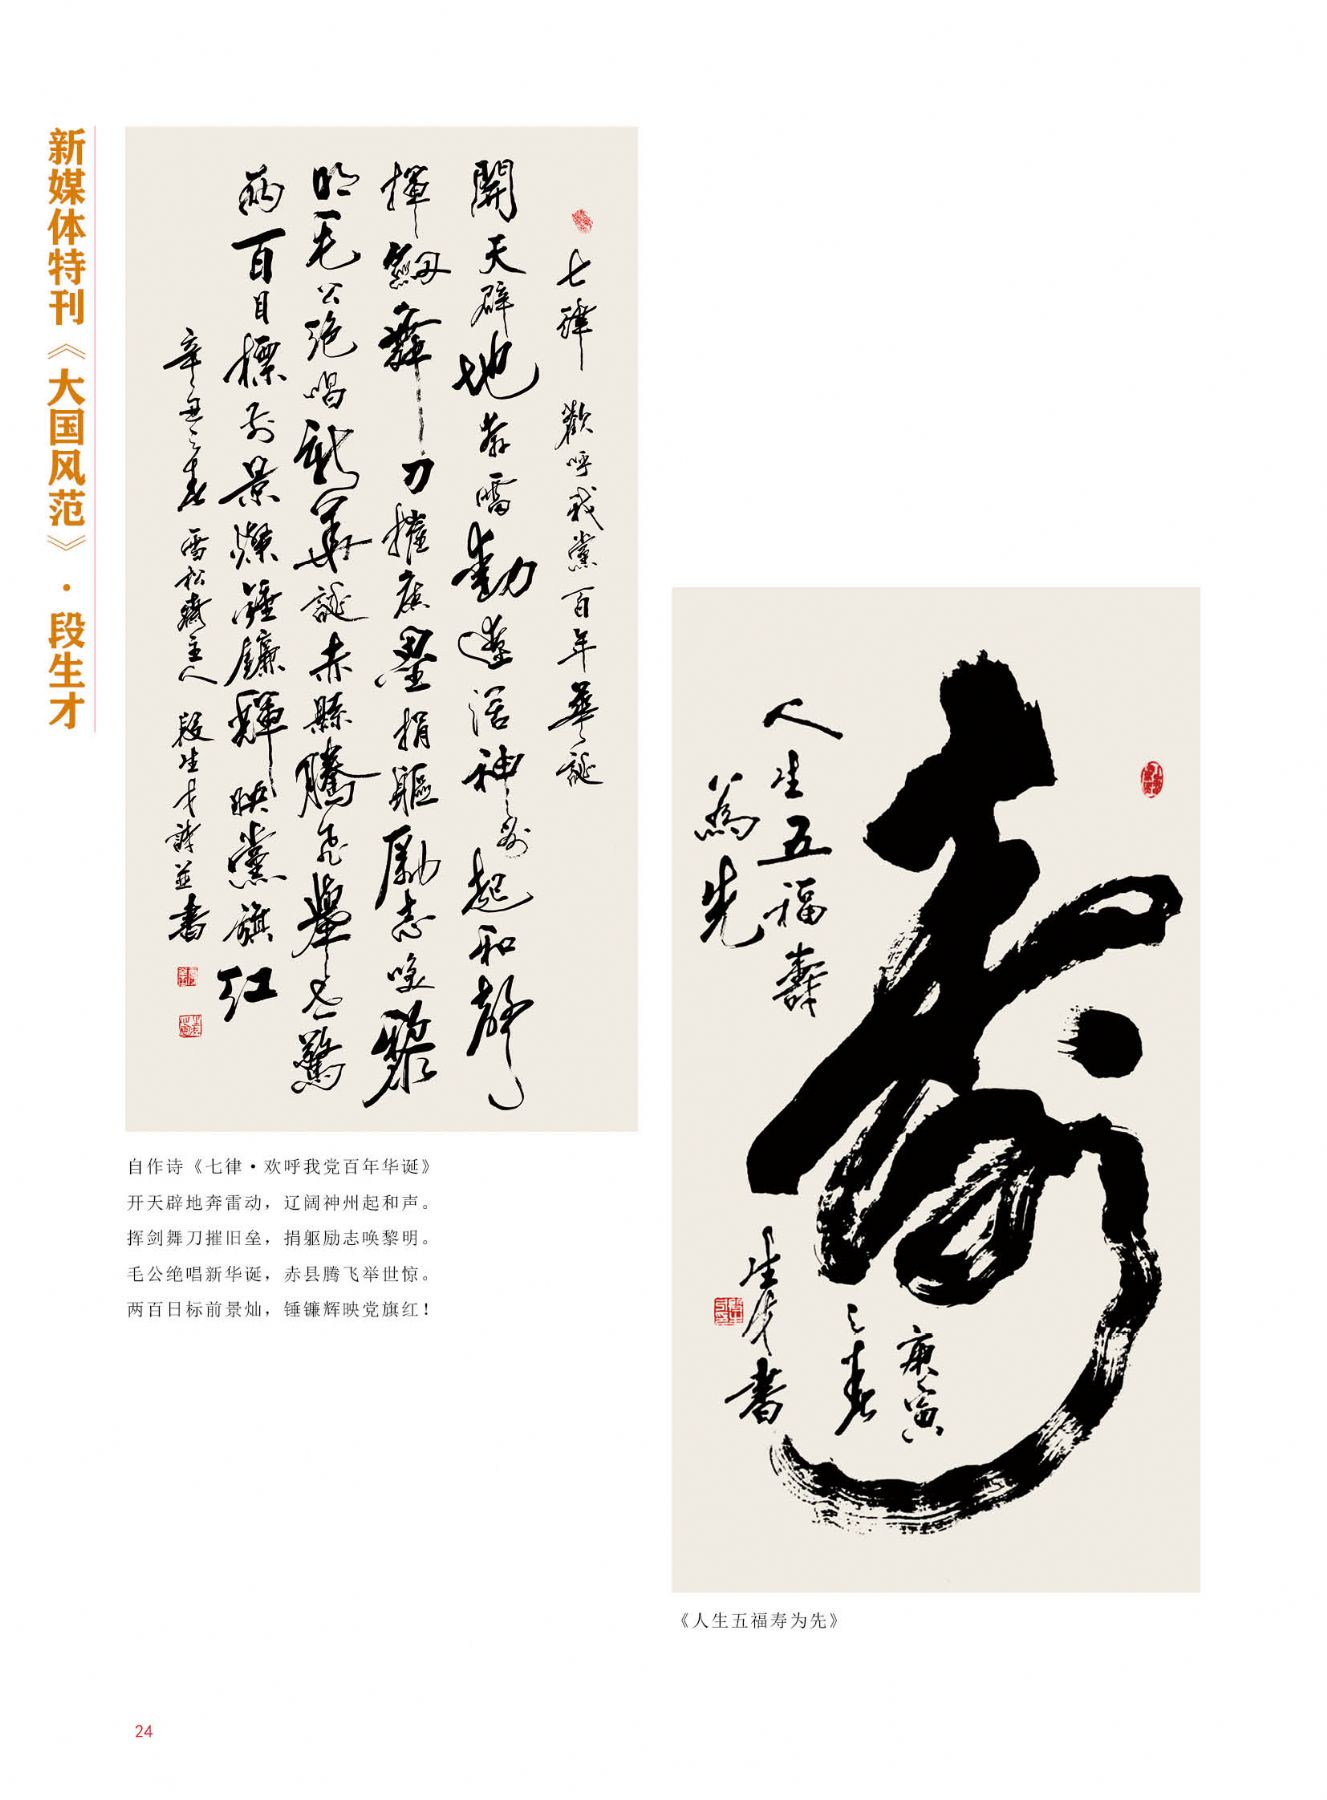 新媒体特刊《大国风范》·段生才
七律 歡呼我黨百年華誕
開天辟地奔雷動遼闊神州起和聲
揮劍舞刀摧舊壘捐軀勵志喚黎
明毛公绝唱新華誕赤縣騰飛舉世驚
兩百目標前景燦錘鐮輝映黨旗红
辛丑之春 雪松齋主人 段生才詩並書
自作诗《七律·欢呼我党百年华诞》
开天辟地奔雷动，辽阔神州起和声。
挥剑舞刀摧旧垒，捐躯励志唤黎明。
毛公绝唱新华诞，赤县腾飞举世惊。
两百目标前景灿，锤镰辉映党旗红！
寿
人生五福壽
為先
庚寅
之春
生才書
《人生五福寿为先》
24